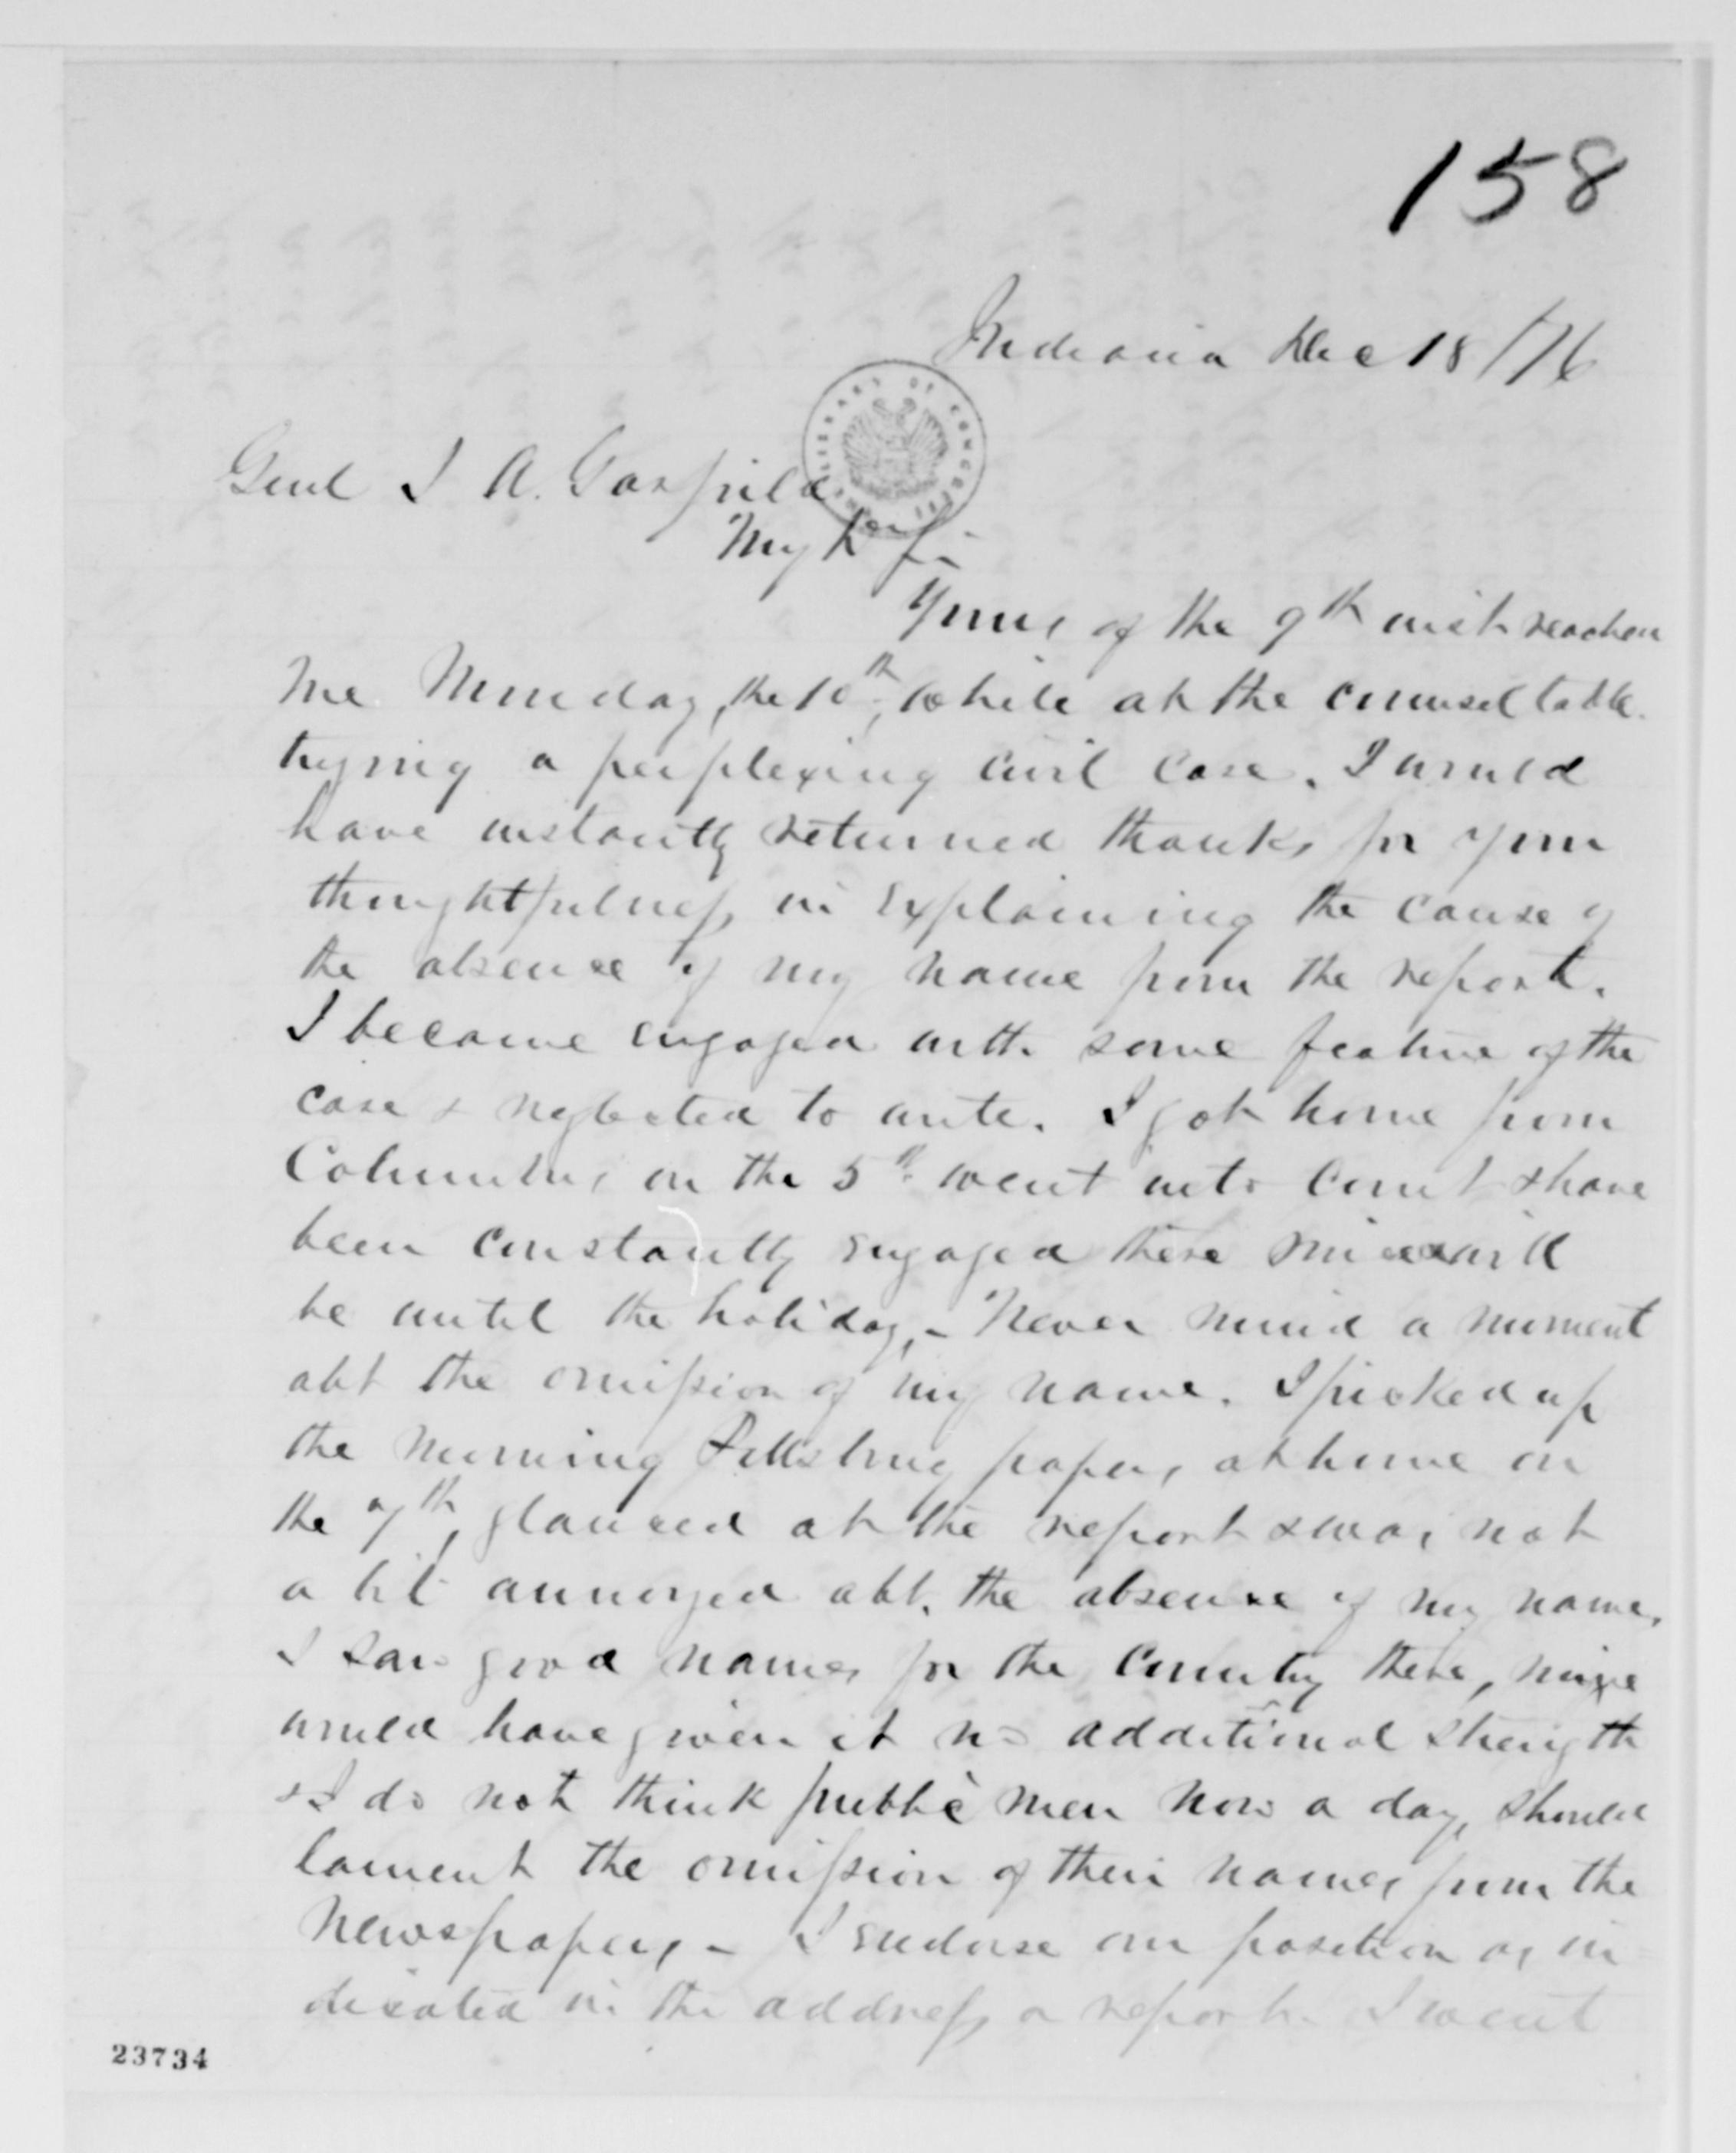 158
Indiana Dec 18/76
LIBRARY OF CONGRESS
Genl J A. Garfield
My Dr Sir
Yours of the 9th inst reached
me Monday, the 10th, while at the counsel table
trying a perplexing civil case. I would
have instantly returned thanks for your
thoughtfulness in explaining the cause of
the absence of my name from the report.
I became engaged with some feature of the
case & neglected to write. I got home from
Columbus on the 5th went into Court & have
been constantly engaged there since & will
be until the holidays – Never mind a moment
abt the omission of my name. I picked up
the morning Pittsburg papers, at home on
the 7th, glanced at the report & was not
a bit annoyed abt. the absence of my name.
I saw good names for the Country there, mine
would have given it no additional strength
& I do not think public men now a days should
lament the omission of their names from the
Newspapers, – I endorse our position as in
dicated in the address or report. I went
23734